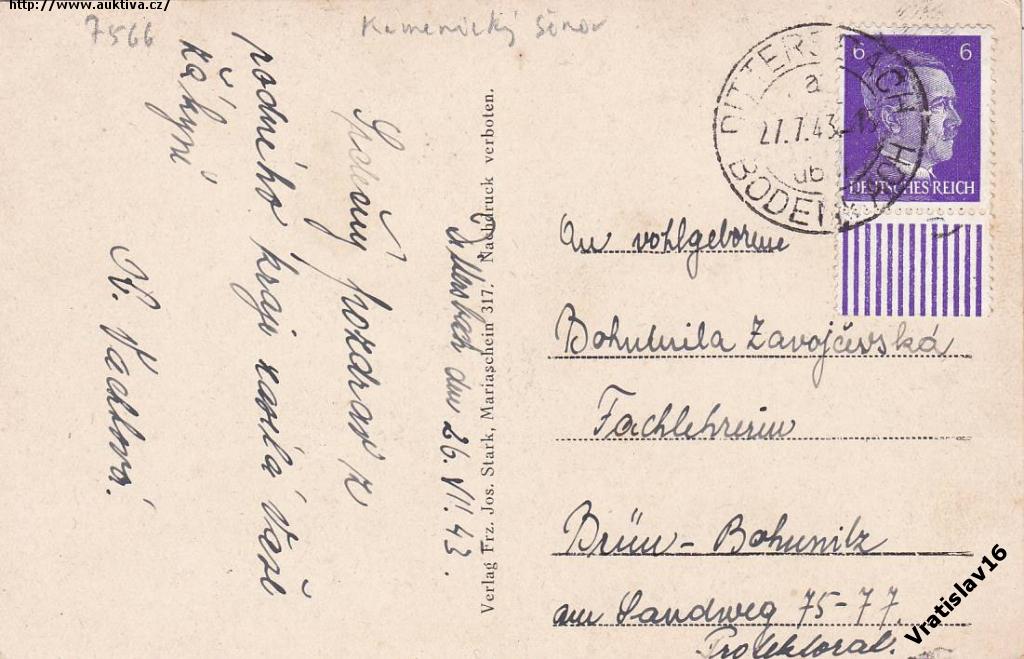 http://www.auktiva.cz/
7566
Kamenický Šenov
Dittersbach den 26. VII. 43.
Srdečný pozdrav z
rodného kraje zasílá Vaše
žákyně
Verlag Frz. Jos. Stark, Mariaschein 317. Nachdruck verboten.
DITTERSBACH
a
27.7.43-18
üb
BODENBACH
6 6
DEUTSCHES REICH
An vohlgeborene
Bohumila Zavojčevská
Fachlehrerin
Brünn - Bohunitz
am Sandweg 75-77.
Protektorat.
Vratislav16